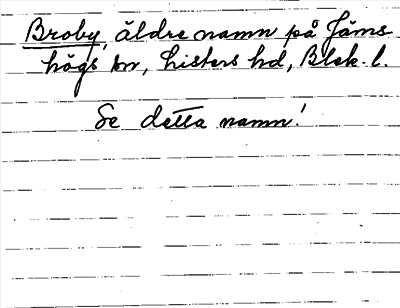 Broby, äldre namn på Jäms
högs sn, Listers hd, Blek. l.
Se detta namn!